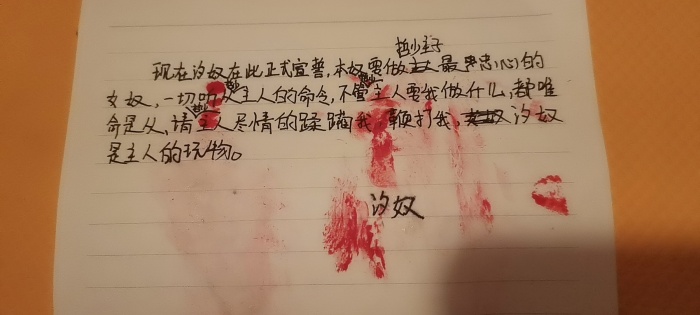 现在汐奴在此正式宣誓,本奴要做主人最忠心的
女奴,一切听从主人的命令,不管主人要我做什么,都唯
命是从,请主人尽情的蹂躏我,鞭打我,汐奴
是主人的玩物。
汐奴